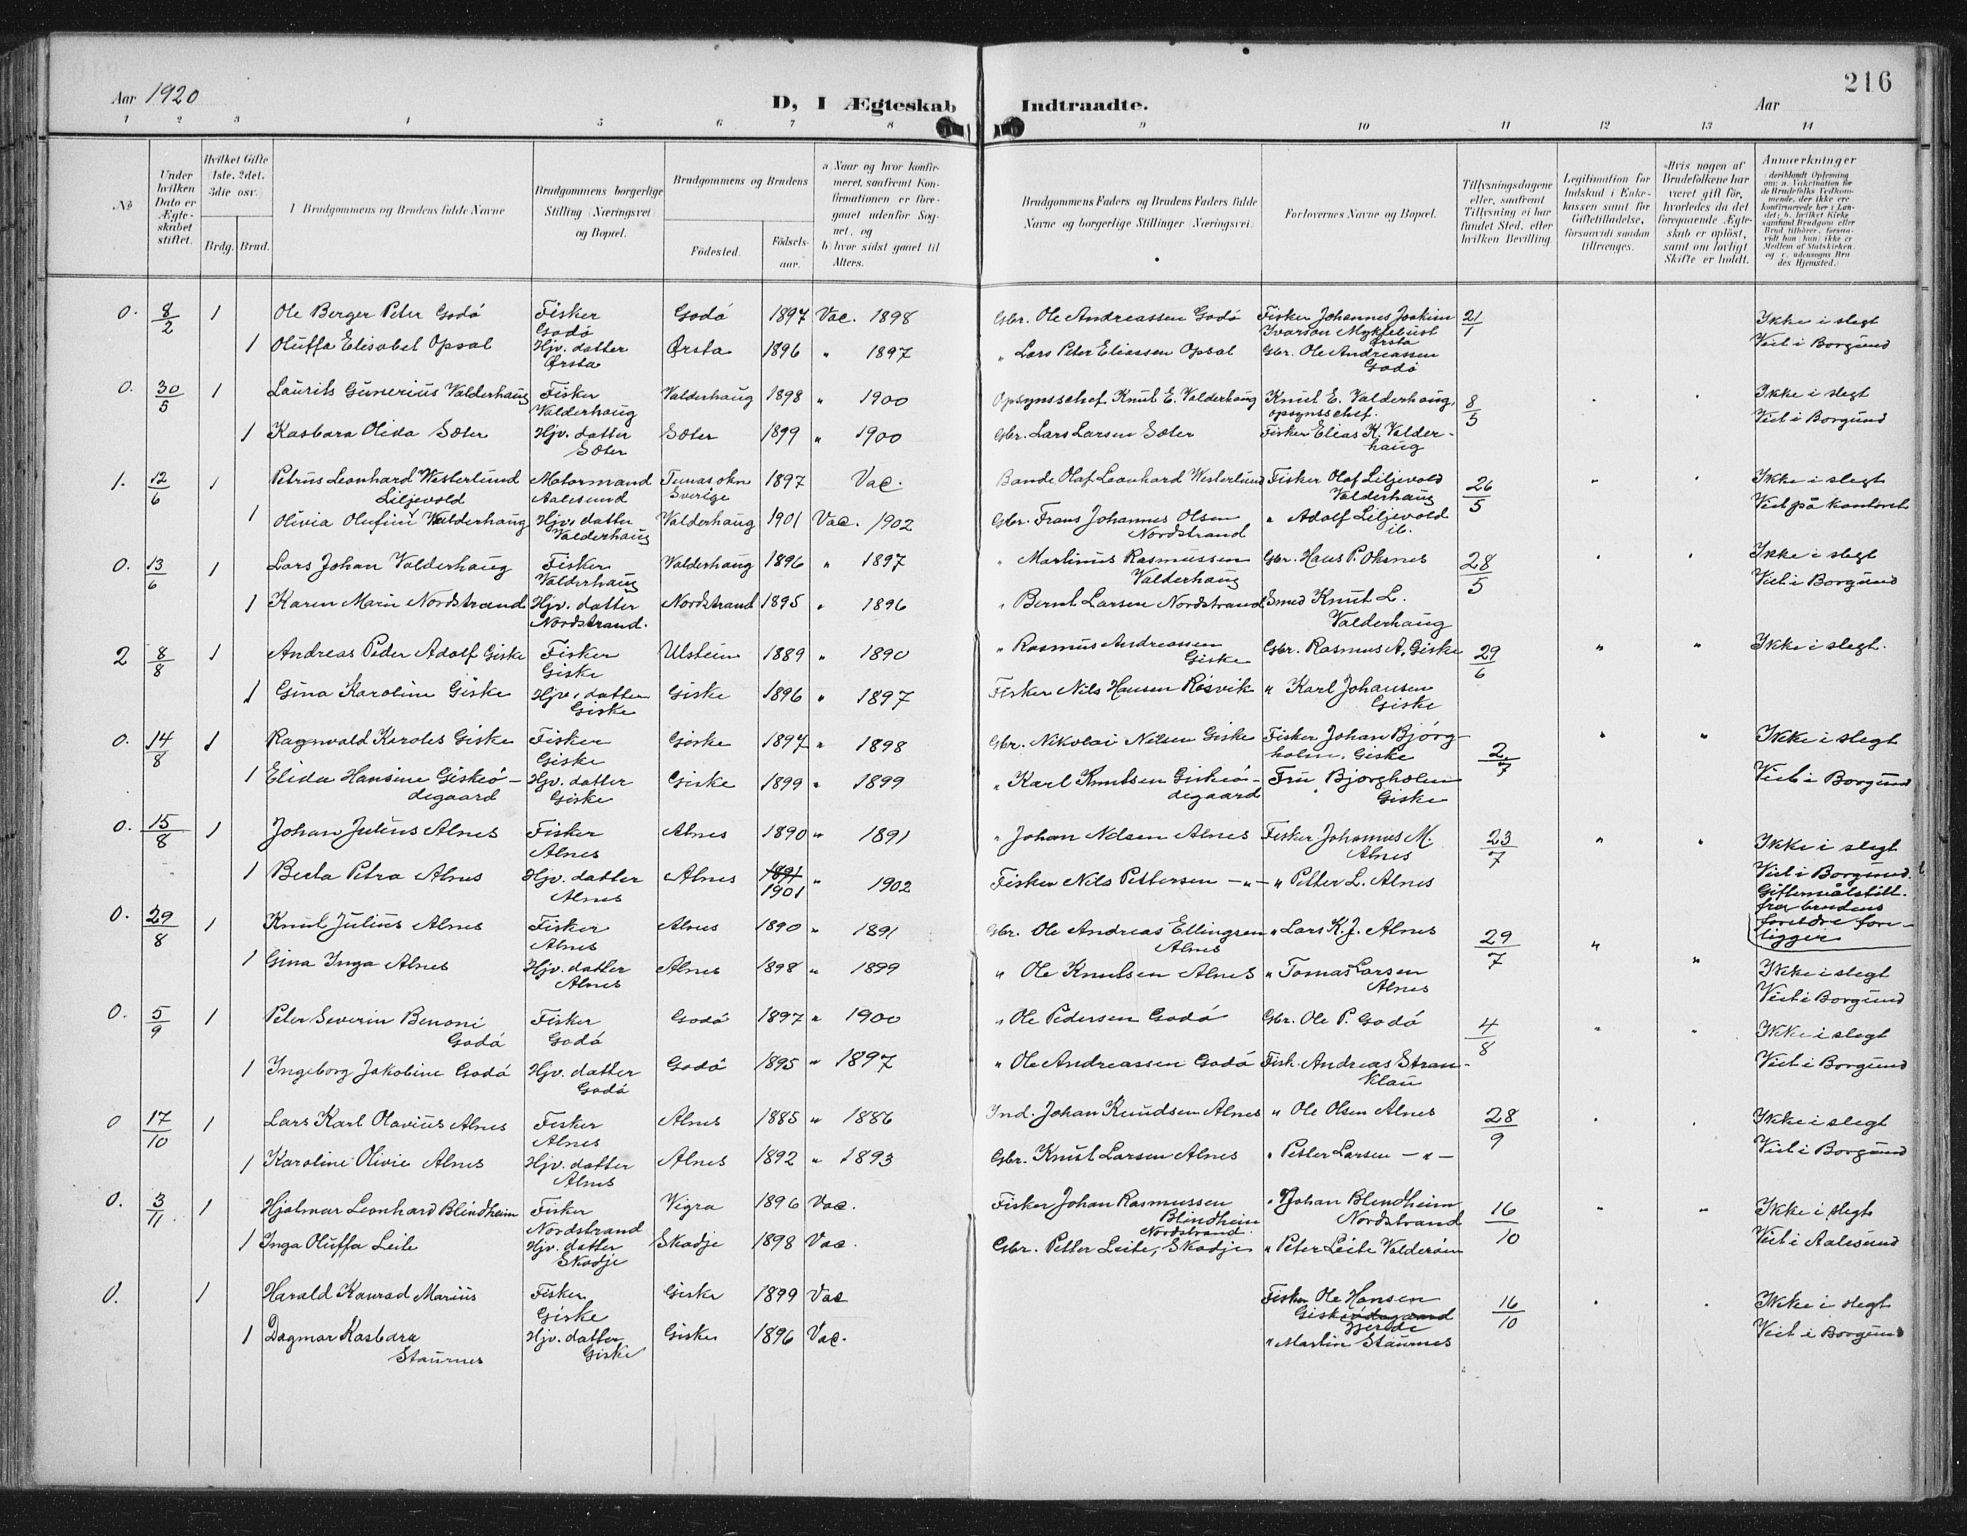 216
Aar 1920
D, I Ægteskab Indtraadte.
Aar
1 2 3 4 5 6 7 8 9 10 11 12 13 14
No
Under hvilken Dato er Ægteskabet stiftet.
Hvilket Gifte (1ste, 2det, 3die osv.)
Brdg. Brud.
1 Brudgommens og Brudens fulde Navne
Brudgommens borgerlige Stilling (Næringsvei) og Bopæl.
Brudgommens og Brudens
Fødested. Fødselsaar.
a Naar og hvor konfirmeret, saafremt Konfirmationen er foregaaet udenfor Sognet, og
b hvor sidst gaaet til Alters.
Brudgommens Faders og Brudens Faders fulde Navne og borgerlige Stillinger (Næringsvei.
Forlovernes Navne og Bopæl.
Tillysningsdagene eller, saafremt Tillysning ei har fundet Sted, efter hvilken Bevilling.
Legitimation for Indskud i Enkekassen samt for Giftetilladelse, forsaavidt saadan tiltrænges.
Hvis nogen af Brudefolkene har været gift før, hvorledes da det foregaaende Ægteskab er opløst, samt om lovligt Skifte er holdt.
Anmerkninger (deriblandt Oplysning om: a. Vakcination for de Brudefolks Vedkommende, der ikke ere konfirmerede her i Landet; b. hvilket Kirkesamfund Brudgom eller Brud tilhører, forsaavidt han (hun) ikke er Medlem af Statskirken, og c. udensogns Brudes Hjemsted.
0. 8/2 1 Ole Berger Peter Godö Fisker Godö Godö 1897 Vac. 1898 Gbr. Ole Andreassen Godö Fisker Johannes Joakim Ivarson Myklebust Ørsta 21/1 Ikke i slegt
1 Oluffa Elisabet Opsal Hjv. datter Ørsta Ørsta 1896 " 1897 " Lars Peter Eliassen Opsal Gbr. Ole Andreassen Godö Viet i Borgund
0. 30/5 1 Laurits Gunerius Valderhaug Fisker Valderhaug Valderhaug 1898 " 1900 Opsynsschef Knut E. Valderhaug Knut E. Valderhaug, opsynsschef. 8/5 Ikke i slegt
1 Kasbara Olida Sæter Hjv. datter Sæter Sæter 1899 " 1900 Gbr. Lars Larsen Sæter Fisker Elias K. Valderhaug Viet i Borgund
1. 12/6 1 Petrus Leonhard Westerlund Liljevold Motormand Aalesund Sverige 1897 Vac. Olaf Leonhard Westerlund Fisker Olaf Liljevold Valderhaug 26/5 Ikke i slegt
1 Olivia Olufine Valderhaug Hjv. datter Valderhaug Valderhaug 1901 Vac. 1902 Gbr. Frans Johannes Olsen Nordstrand " Adolf Liljevold ib. Viet på kontoret
0. 13/6 1 Lars Johan Valderhaug Fisker Valderhaug Valderhaug 1896 " 1897 " Martinus Rasmussen Valderhaug Gbr. Hans P. Oksnes 28/5 " " Ikke i slegt
1 Karen Marie Nordstrand Hjv. datter Nordstrand. Nordstrand 1895 " 1896 " Bernt Larsen Nordstrand Smed Knut L. Valderhaug Viet i Borgund
2 8/8 1 Andreas Peder Adolf Giske Fisker Giske Ulstein 1889 " 1890 " Rasmus Andreassen Giske Gbr. Rasmus A. Giske 29/6 " " Ikke i slegt.
1 Gina Karoline Giske Hjv. datter Giske Giske 1896 " 1897 Fisker Nils Hansen Røsvik " Karl Johansen Giske
0. 14/8 1 Ragnvald Karoles Giske Fisker Giske Giske 1897 " 1898 Gbr. Nikolai Nilsen Giske Fisker Johan Bjørgholm. Giske 2/7 " " Ikke i slegt
1 Elida Hansine Giskeödegaard Hjv. datter Giske Giske 1899 " 1899 " Karl Knutsen Giskeödegaard Fru Bjørgholm Giske Viet i Borgund
0. 15/8 1 Johan Julius Alnes Fisker Alnes Alnes 1890 " 1891 " Johan Nilsen Alnes Fisker Johannes M. Alnes 23/7 " " Ikke i slegt
1 Berta Petra Alnes Hjv. datter Alnes Alnes 1891 1901 " 1902 Fisker Nils Pettersen -"- " Petter L. Alnes Viet i Borgund. Giftemålstill. fra brudens foreldre foreligger
0. 29/8 1 Knut Julius Alnes Fisker Alnes Alnes 1890 " 1891 Gbr. Ole Andreas Ellingsen Alnes " Lars K. J. Alnes 29/7 " " Ikke i slegt
1 Gina Inga Alnes Hjv. datter Alnes Alnes 1898 " 1899 " Ole Knutsen Alnes " Tomas Larsen Alnes Viet i Borgund
0. 5/9 1 Peter Severin Benoni Godö Fisker Godö Godö 1897 " 1900 " Ole Pedersen Godö Gbr. Ole P. Godö 4/8 " " Ikke i slegt
1 Ingeborg Jakobine Godö Hjv. datter Godö Godö 1895 " 1897 " Ole Andreassen Godö Fisk. Andreas Viet i Borgund
0 17/10 1 Lars Karl Olavius Alnes Fisker Alnes Alnes 1885 " 1886 Ind. Johan Knudsen Alnes " Ole Olsen Alnes 28/9 Ikke i slegt
1 Karoline Olivie Alnes Hjv. datter Alnes Alnes 1892 " 1893 Gbr. Knut Larsen Alnes " Petter Larsen -"- Viet i Borgund
0. 3/11 1 Hjalmar Leonhard Blindheim Fisker Nordstrand Vigra 1896 Vac. Fisker Johan Rasmussen Blindheim Nordstrand. " Johan Blindheim Nordstrand 16/10 " " Ikke i slegt
1 Inga Oluffa Leite Hjv. datter Skodje Skodje 1898 Vac. Gbr. Petter Leite, Skodje " Peter Leite Valderöen Viet i Aalesund
0. 1 Harald Konrad Marius Fisker Giske Giske 1899 Vac Fisker Ole Hansen Giskeödegaard Gjerde 16/10 Ikke i slegt
1 Dagmar Kasbara Staurnes Hjv. datter Giske Giske 1896 Vac. " Martin Staurnes Viet i Borgund